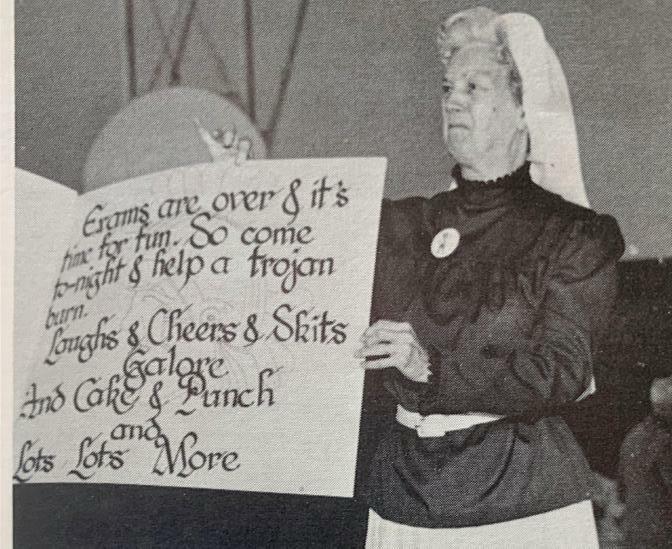 Exams are over & it's
time for fun. So come
to-night & help a trojan
burn.
Laughs & Cheers & Skits
Galore
And Cake & Punch
and
Lots Lots More